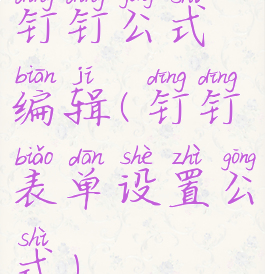 dīng dīng gōng shì
钉钉公式
biān jí dīng dīng
编辑(钉钉
biǎo dān shè zhì gōng
表单设置公
shì
式)